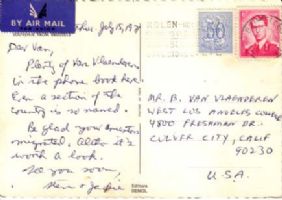 BY AIR MAIL
July 15, 197
Dear Van,
Plenty of Van Vlaenderen
in the phone book here.
Even a section of the
county is so named.
Be glad your ancestors
migrated. Altho it's
worth a look.
See you soon,
MR. B. VAN VLAENDEREN
WEST LOS ANGELES COLLEGE
4800 FRESHMAN DR.
CULVER CITY, CALIF
90230
U.S.A.